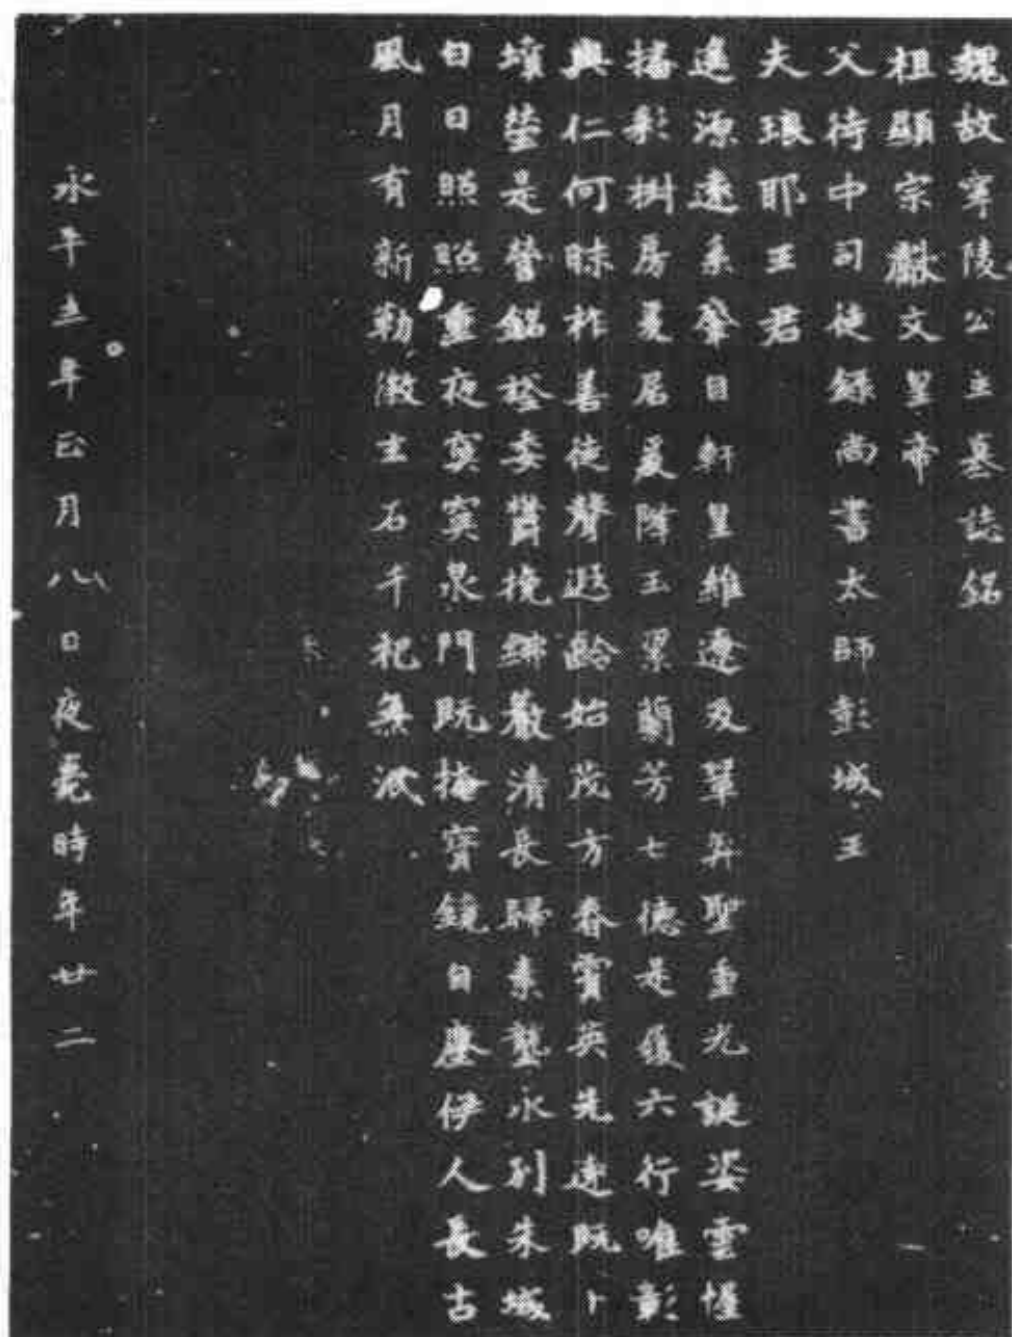 魏故寧陵公主墓誌銘
祖顯宗獻文皇帝
父侍中司徒錄尚書太師彭城王
夫琅耶王君
遙源遠系肇自軒皇維遼及鞏弈聖重光誕姿雲幄
播彩椒房爰居爰降玉潔蘭芳七德是履六行唯彰
與仁何昧祚善徒聲遐齡始茂方春實英先遠既卜
墳塋是營銘旌委鬱挽紼嚴清長歸素壟永別朱城
白日照照重夜寞寞泉門既掩寶鏡自塵伊人長古
風月有新勒徽玄石千祀無泯
永平三年正月八日夜薨時年廿二